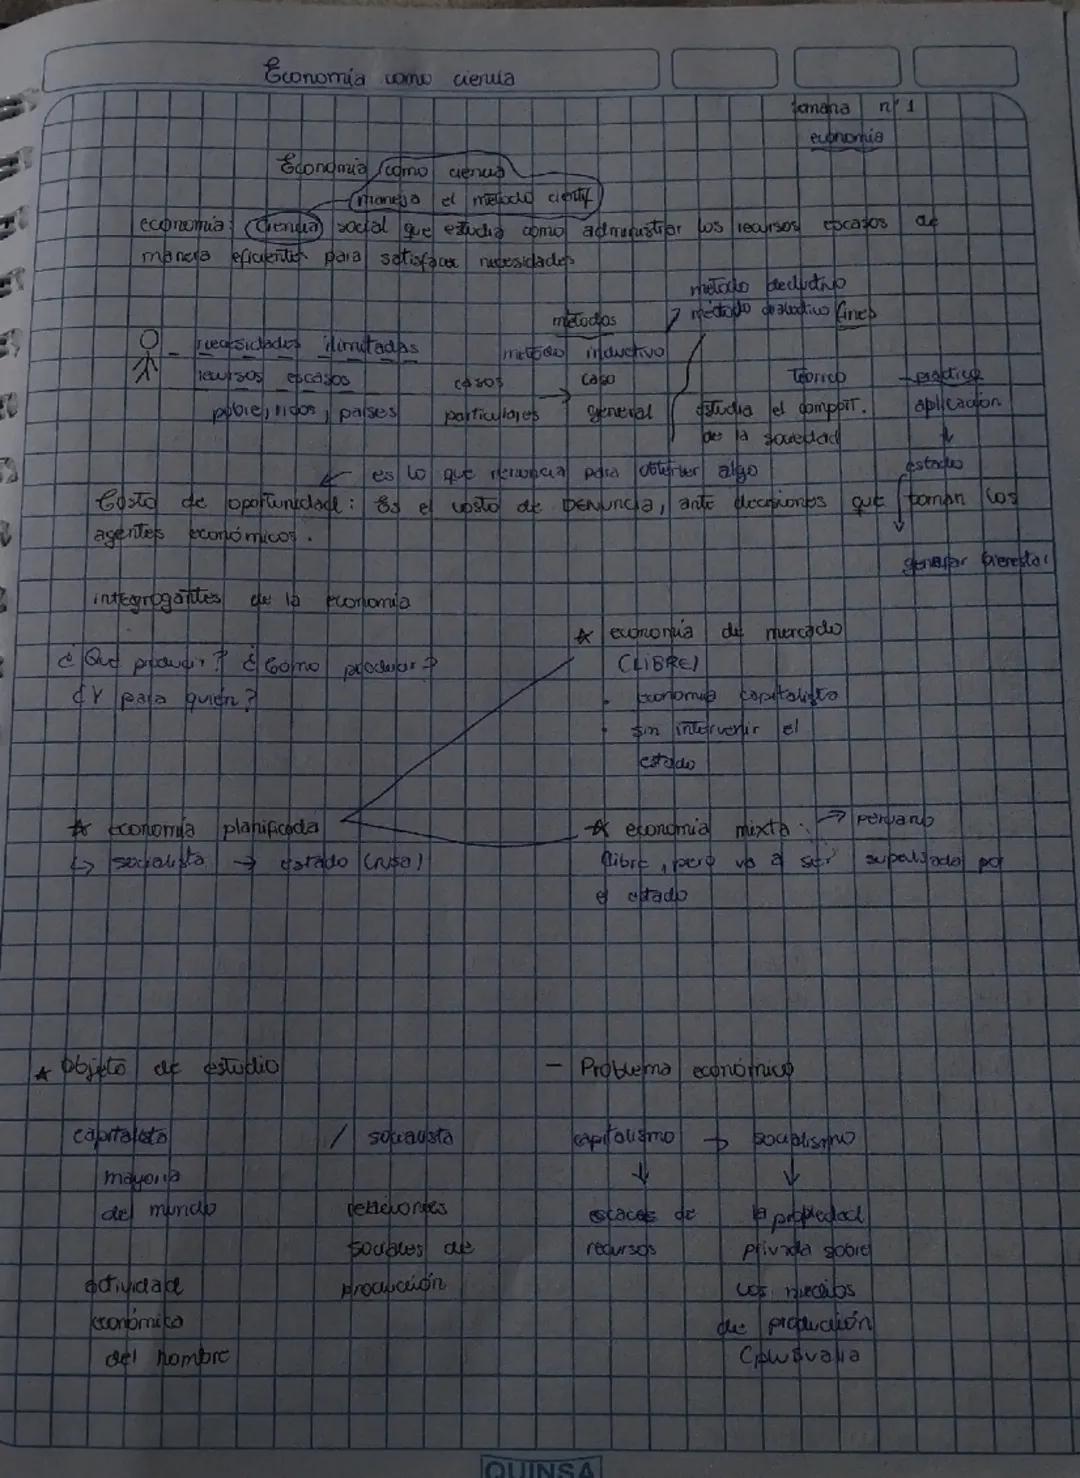 Economía como ciencia
Semana n° 1
economia
Economia como ciencia
maneja el metodo cientif
economia: Ciencia social que estudia como administrar los recursos escasos de
manera eficientes para satisfacer necesidades
metodo deductivo
métodos
método dialectivo fines
- necesidades ilimitadas
método inductivo
recursos escasos
casos → caso
Teorico - practica
pobre, ricos, paises
particulares general
estudia el comport. aplicacion
de la sociedad
es lo que renuncia para obtener algo
estado
Costo de oportunidad: Es el costo de renuncia, ante decisiones que toman los
agentes económicos.
generar bienestar
integrogantes de la economia
☆ economia de mercado
¿Qué producir? ¿Cómo producir?
(LIBRE)
¿Y para quién?
. economia capitalista
. sin intervenir el
estado
☆ economia planificada
☆ economia mixta: → peruano
↳ socialista → estado (rusa)
libre, pero va a ser supervisado por
el estado
☆ Objeto de estudio
- Problema económico
capitalista / socialista
capitalismo → socialismo
mayoria
del mundo
relaciones
escaces de
la propiedad
sociales de
recursos
privada sobre
actividad
producción
los medios
económica
de producción
del hombre
(plusvalia
QUINSA